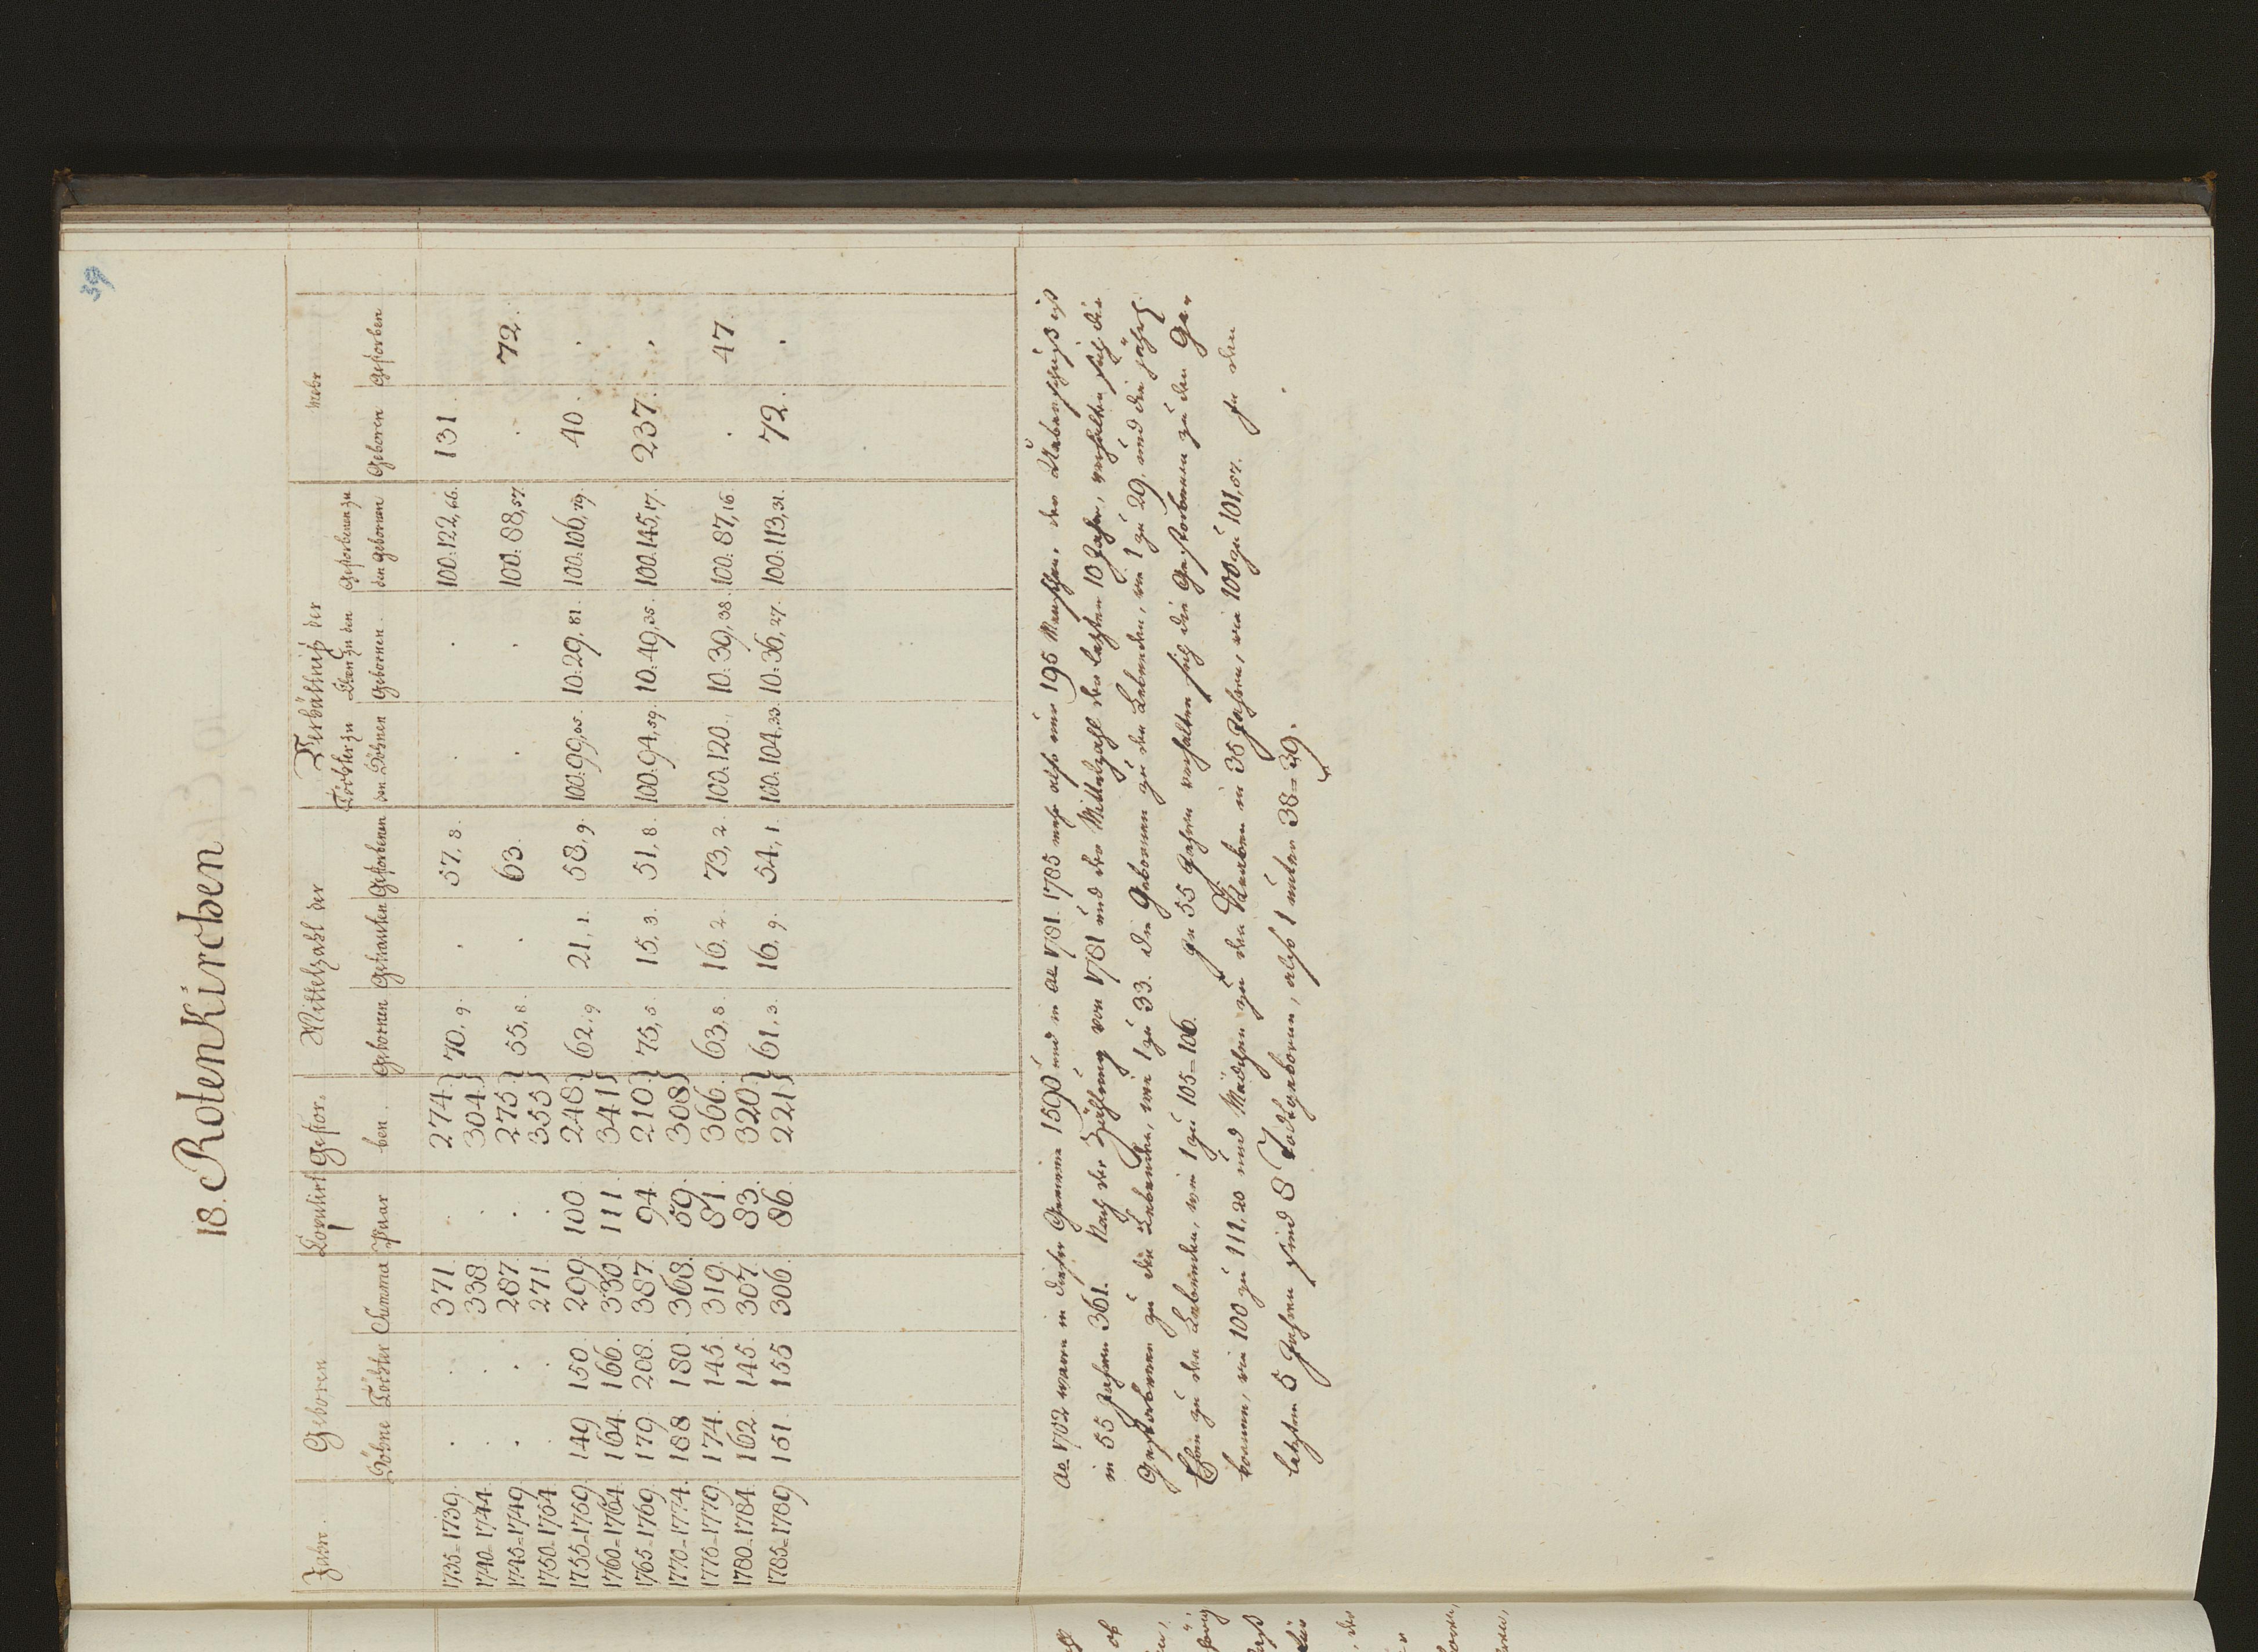 59
18. Rotenkirchen
Jahre. Geboren Copulirt Gestor- Mittelzahl der Verhältniß der Mehr
Söhne Töchter Summa Paar ben. Gebornen Getrauten Gestorbenen Töchter zu den Söhnen Ehen zu den Gebornen. Gestorbenen zu den Gebornen Geboren Gestorben
1735-1739. . . 371. . 274. } 70,9. . 57,8. . . 100:122,66. 131.
1740-1744. . . 338. . 304. }
1745-1749. . . 287. . 275. } 55,8. . 63. . . 100:88,57. . 72.
1750-1754. . . 271. . 355 }
1755-1759. 149 150. 299. 100. 248. } 62,9 21,1. 58,9. 100:99,05. 10:29,81. 100:106,79. 40. .
1760-1764. 164. 166. 330. 111. 341 }
1765-1769. 179. 208. 387. 94. 210. } 75,5. 15,3. 51,8. 100:94,59. 10:49,35. 100:145,17. 237. .
1770-1774. 188 180. 368. 59. 308 }
1775-1779. 174. 145. 319. 81. 366. } 63,8. 16,2. 73,2. 100:120. 10:39,38. 100:87,16. . 47.
1780-1784. 162. 145. 307. 83. 320. } 61,3. 16,9. 54,1. 100:104,33. 10:36,27. 100:113,31. 72. .
1785-1789. 151. 155 306. 86. 221 }
ao 1702 waren in dieser Gemeine 1590 und in ao 1781. 1785 mehr also nur 195 Menschen. der Ueberschuß ist
in 55 Jahren 361. Nach der Zählung von 1781 und der Mittelzahl der letzten 10 Jahre, verhalten sich die
Gestorbenen zu die Lebenden, wie 1 zu 33. die Gebornen zu den Lebenden, wie 1 zu 29, und die jährl.
Ehen zu den Lebenden, wie 1 zu 105=106. In 55 Jahren verhalten sich die Gestorbenen zu den Ge-
bornen, wie 100 zu 111,20 und Mädchen zu den Knaben in 35 Jahren, wie 100 zu 101,57. In den
letzten 5 Jahren sind 8 Todtgeboren, also 1 unter 38=39.